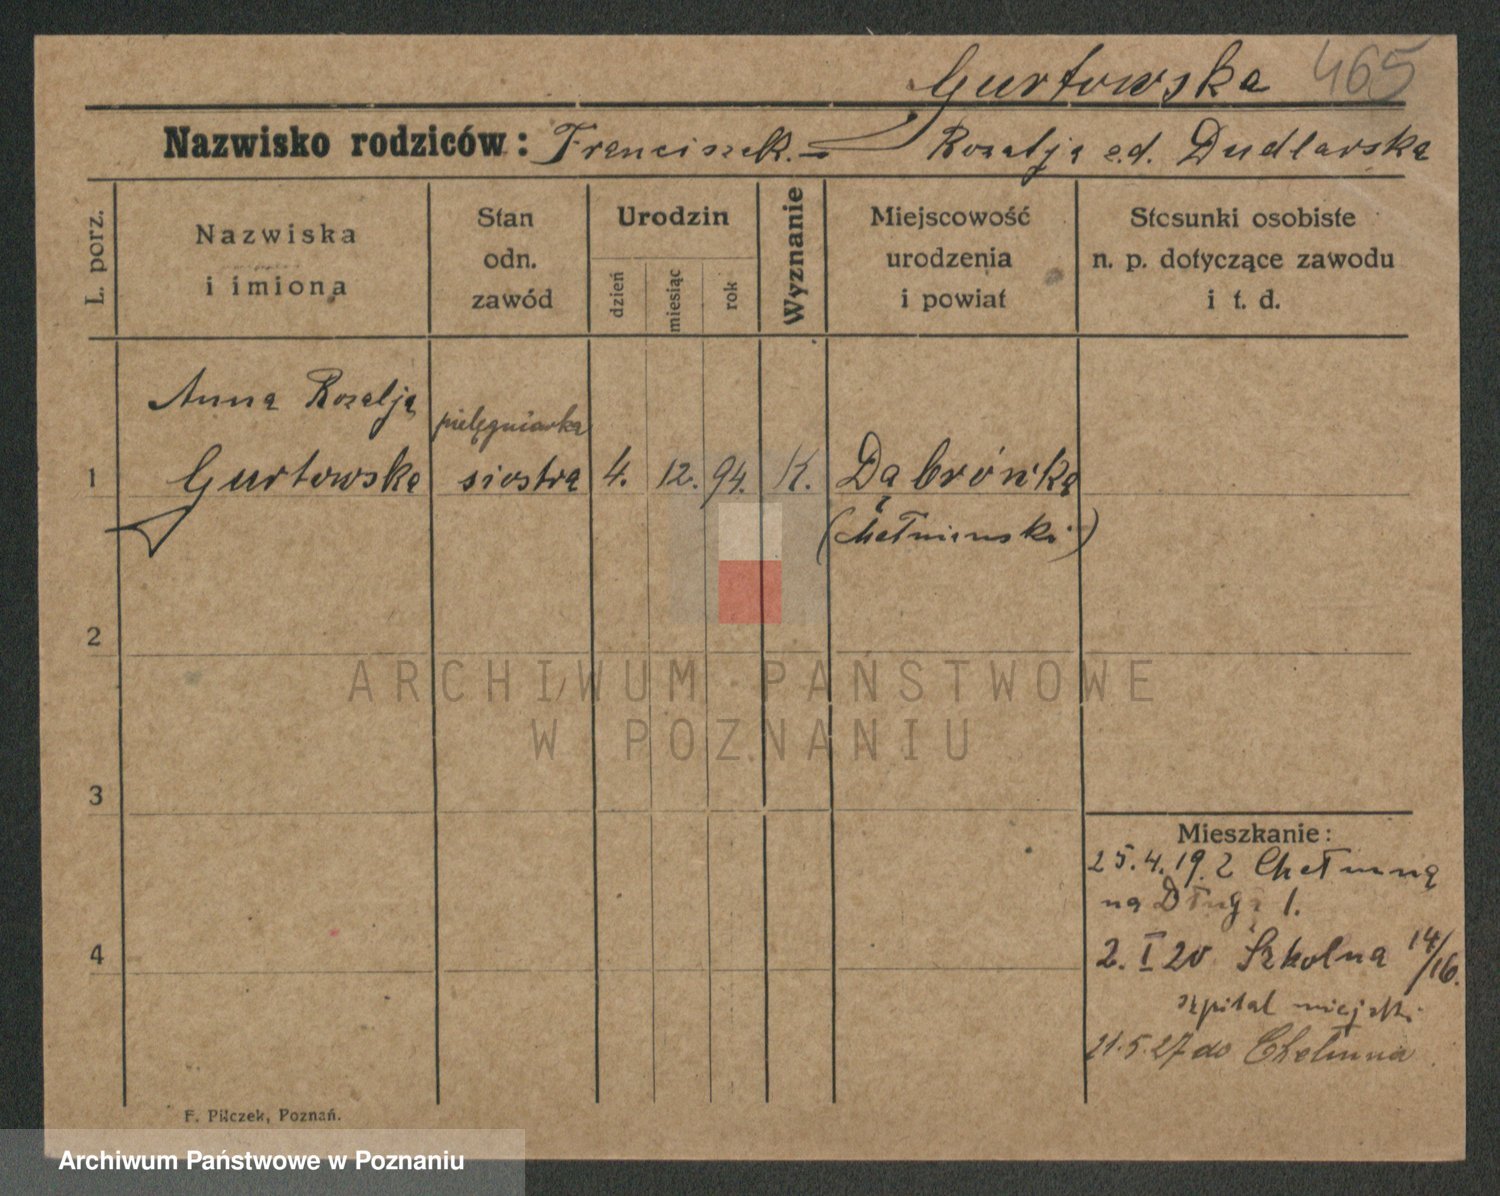 Gurtowska 465
Nazwisko rodziców: Franciszek. – Rozalja e.d. Dudlarska
L. porz.
Nazwiska
i imiona
Stan
odn.
zawód
Urodzin
dzień
miesiąc
rok
Wyznanie
Miejscowość
urodzenia
i powiat
Stosunki osobiste
n. p. dotyczące zawodu
i t. d.
Anna Rozalja
pielęgniarka
1 Gurtowska siostra 4. 12. 94. K. Dąbrówka
(Chełminski)
2
ARCHIWUM PAŃSTWOWE
W POZNANIU
3
Mieszkanie:
25.4.19. z Chełmna
na Długą 1.
4
2. I 20 Szkolna 14/16.
szpital miejski
21.5.27 do Chełmna
F. Pilczek, Poznań.
Archiwum Państwowe w Poznaniu